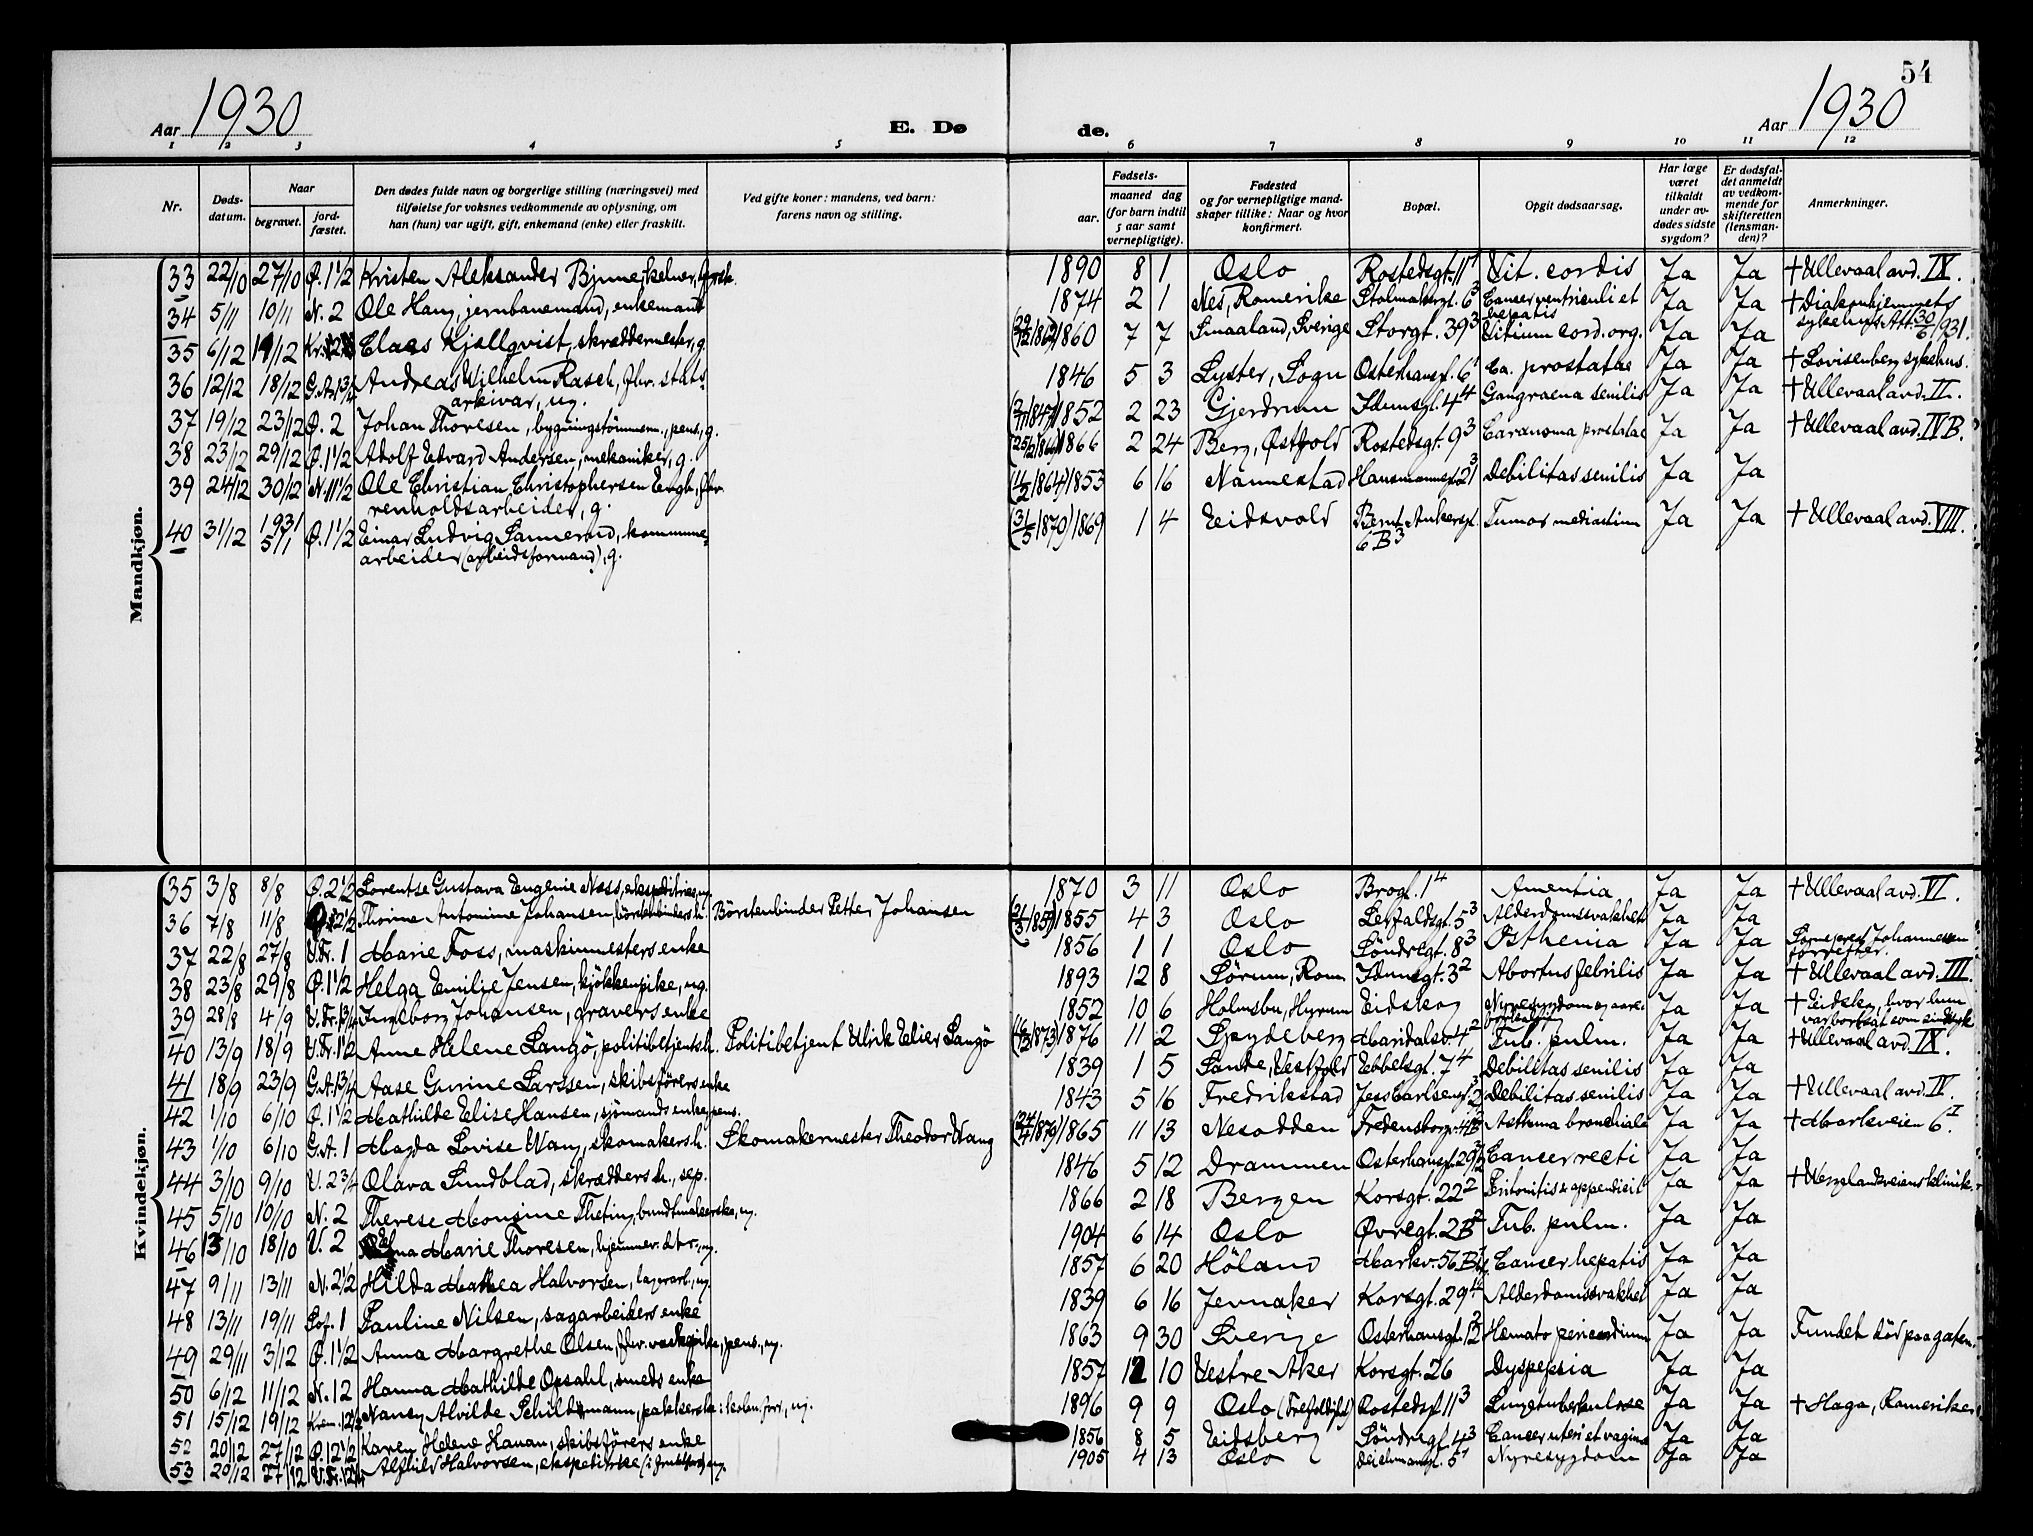 54
Aar 1930 E. Dø de. Aar 1930
1 2 3 4 5 6 7 8 9 10 11 12
Nr. Døds-datum. Naar begravet. jord-fæstet. Den dødes fulde navn og borgerlige stilling (næringsvei) med tilføielse for voksnes vedkommende av oplysning, om han (hun) var ugift, gift, enkemand (enke) eller fraskilt. Ved gifte koner: mandens, ved barn: farens navn og stilling. Fødsels- aar. maaned dag (for barn indtil 5 aar samt vernepligtige). Fødested og for vernepligtige mand-skaper tillike: Naar og hvor konfirmert. Bopæl. Opgit dødsaarsag. Har læge været tilkaldt under av-dødes sidste sygdom? Er dødsfal-det anmeldt av vedkom-mende for skifteretten (lensman-den)? Anmerkninger.
Mandkjøn.
33 22/10 27/10 Ø. 1 1/2 Kristen Aleksander, kelner, 1890 8 1 Oslo Rostedsgt. 11 Vit. cordis Ja Ja † Ullevaal avd. IX.
34 5/11 10/11 N. 2 Ole Haug, jernbanemand, enkemand 1874 2 1 Nes, Romerike 6 3 Cancer ventriculi et hepatis Ja Ja † Diakonhjemmets sykehus Att. 30/6 1931.
35 6/12 12 Claes Kjellqvist, skræddermester, g. 1860 7 7 Smaaland, Sverige Storgt. 39 3 Vitium cord. org. Ja Ja
36 12/12 18/12 G.A. 1 3/4 Andreas Wilhelm Rasch, fhv. stats-arkivar, ug. 1846 5 3 Lyster, Sogn Osterhausgt. 6 1 Ca. prostatae Ja Ja † Lovisenberg sykehus.
37 19/12 23/12 Ø. 2 Johan Thoresen, bygningstømmerm., pens., g. 1852 2 23 Gjerdrum Idunsgt. 4 4 Gangraena senilis Ja Ja † Ullevaal avd. II.
38 23/12 29/12 Ø. 1 1/2 Adolf Edvard Andersen, mekaniker, g. 1866 2 24 Berg, Østfold Rostedsgt. 9 3 prostatae Ja Ja † Ullevaal avd. IV B.
39 24/12 30/12 N. 11 1/2 Ole Christian Christophersen Engh, fhv. renholdsarbeider, g. (1864) 1853 6 16 Nannestad Hausmannsgt. 21 3 Debilitas senilis Ja Ja
40 31/12 1931 5/1 Ø. 1 1/2 Einar Ludvig Sannerød, kommune-arbeider (arbeidsformand), g. (31/5 1870) 1869 1 4 Eidsvold Bernt Ankersgt. 6 B 3 Tumor mediastini Ja Ja † Ullevaal avd. VIII.
Kvindekjøn.
35 3/8 8/8 Ø. 2 1/2 Lorentse Gustava Eugenie Næss, ekspeditrice, ug. 1870 3 11 Oslo Brogt. 1 4 Amentia Ja Ja † Ullevaal avd. VI.
36 7/8 11/8 2 1/2 Thrine Antonine Johansen, børstenbinders h. Børstenbinder Petter Johansen 1855 4 3 Oslo 5 3 Alderdomssvakhet Ja Ja
37 22/8 27/8 V. Fr. 1 Marie Foss, maskinmesters enke 1856 1 1 Oslo Søndregt. 8 3 Asthenia Ja Ja Sogneprest Johannessen forretter.
38 23/8 29/8 Ø. 1 1/2 Helga Emilie Jensen, kjøkkenpike, ug. 1893 12 8 Sørum, Rom. Idunsgt. 3 2 Abortus febrilis Ja Ja † Ullevaal avd. III.
39 28/8 4/9 V. Fr. 1 3/4 Ingeborg Johansen, gravers enke 1852 10 6 Holmsbu, Hurum Eidskog Nyresygdom og aare- Ja Ja † Eidskog, hvor hun var bortsat som sindssyk
40 13/9 18/9 V. Fr. 1 1/2 Anne Helene Langø, politibetjents h. Politibetjent Ulrik Elier Langø 1876 11 2 Spydeberg Maridalsv. 4 2 Tub. pulm. Ja Ja † Ullevaal avd. IX.
41 18/9 23/9 G.A. 1 3/4 Aase Gurine Larssen, skibsførers enke 1839 1 5 Sande, Vestfold Ebbelsgt. 7 4 Debilitas senilis Ja Ja
42 1/10 6/10 Ø. 1 1/2 Mathilde Elise Hansen, sjømands enke, pens. 1843 5 16 Fredrikstad Jess Carlsensgt. 2 Debilitas senilis Ja Ja † Ullevaal avd. IV.
43 1/10 6/10 G.A. 1 Magda Lovise Wang, skomakers h. Skomakermester Theodor Wang 1865 11 13 Nesodden Fredensborgv. Asthma bronchiale Ja Ja † Markveien 6 I.
44 3/10 9/10 V. 2 3/4 Olava Sundblad, skrædders h., sep. 1846 5 12 Drammen Osterhausgt. 29 Cancer recti Ja Ja
45 5/10 10/10 N. 2 Therese Monsine Theting, bundtmakerske, ug. 1866 2 18 Bergen Korsgt. 22 2 Peritonitis & appendicit Ja Ja † Wergelandsveiens klinik.
46 13/10 18/10 V. 2 Marie Thoresen, hjemmev. dtr., ug. 1904 6 14 Oslo Øvregt. 2B 2 Tub. pulm. Ja Ja
47 9/11 13/11 N. 2 1/2 Hilda Mathea Halvorsen, lagerarb., ug. 1857 6 20 Høland Markv. 56 B Cancer hepatis Ja Ja
48 13/11 19/11 Sof. 1 Pauline Nilsen, sagarbeiders enke 1839 6 16 Jevnaker Korsgt. 29 4 Alderdomssvakhet Ja Ja
49 29/11 3/12 Ø. 1 1/2 Anna Margrethe Olsen, fhv. vaskepike, pens., ug. 1863 9 30 Sverige Osterhausgt. 12 Hæmato pericardium Ja Ja Fundet død paa gaten.
50 6/12 11/12 N. 12 Hanna Mathilde Opsahl, smeds enke 1857 12 10 Vestre Aker Korsgt. 26 Dyspepsia Ja Ja
51 15/12 19/12 Krem. 12 1/2 Nancy Alvilde Schildmann, pakkerske i kolon. forr., ug. 1896 9 9 Oslo (Trefoldigh.) Rostedsgt. 11 3 Lungetuberkulose Ja Ja † Haga, Romerike
52 20/12 27/12 Ø. 12 1/2 Karen Helene Hanan, skibsførers enke 1856 8 5 Eidsberg Søndregt. 4 3 Cancer uteri et vagina Ja Ja
53 20/12 27/12 V. Fr. Alfhild Halvorsen, ekspeditrise 1905 4 13 Oslo Deichmansgt. 5 Nyresygdom Ja Ja